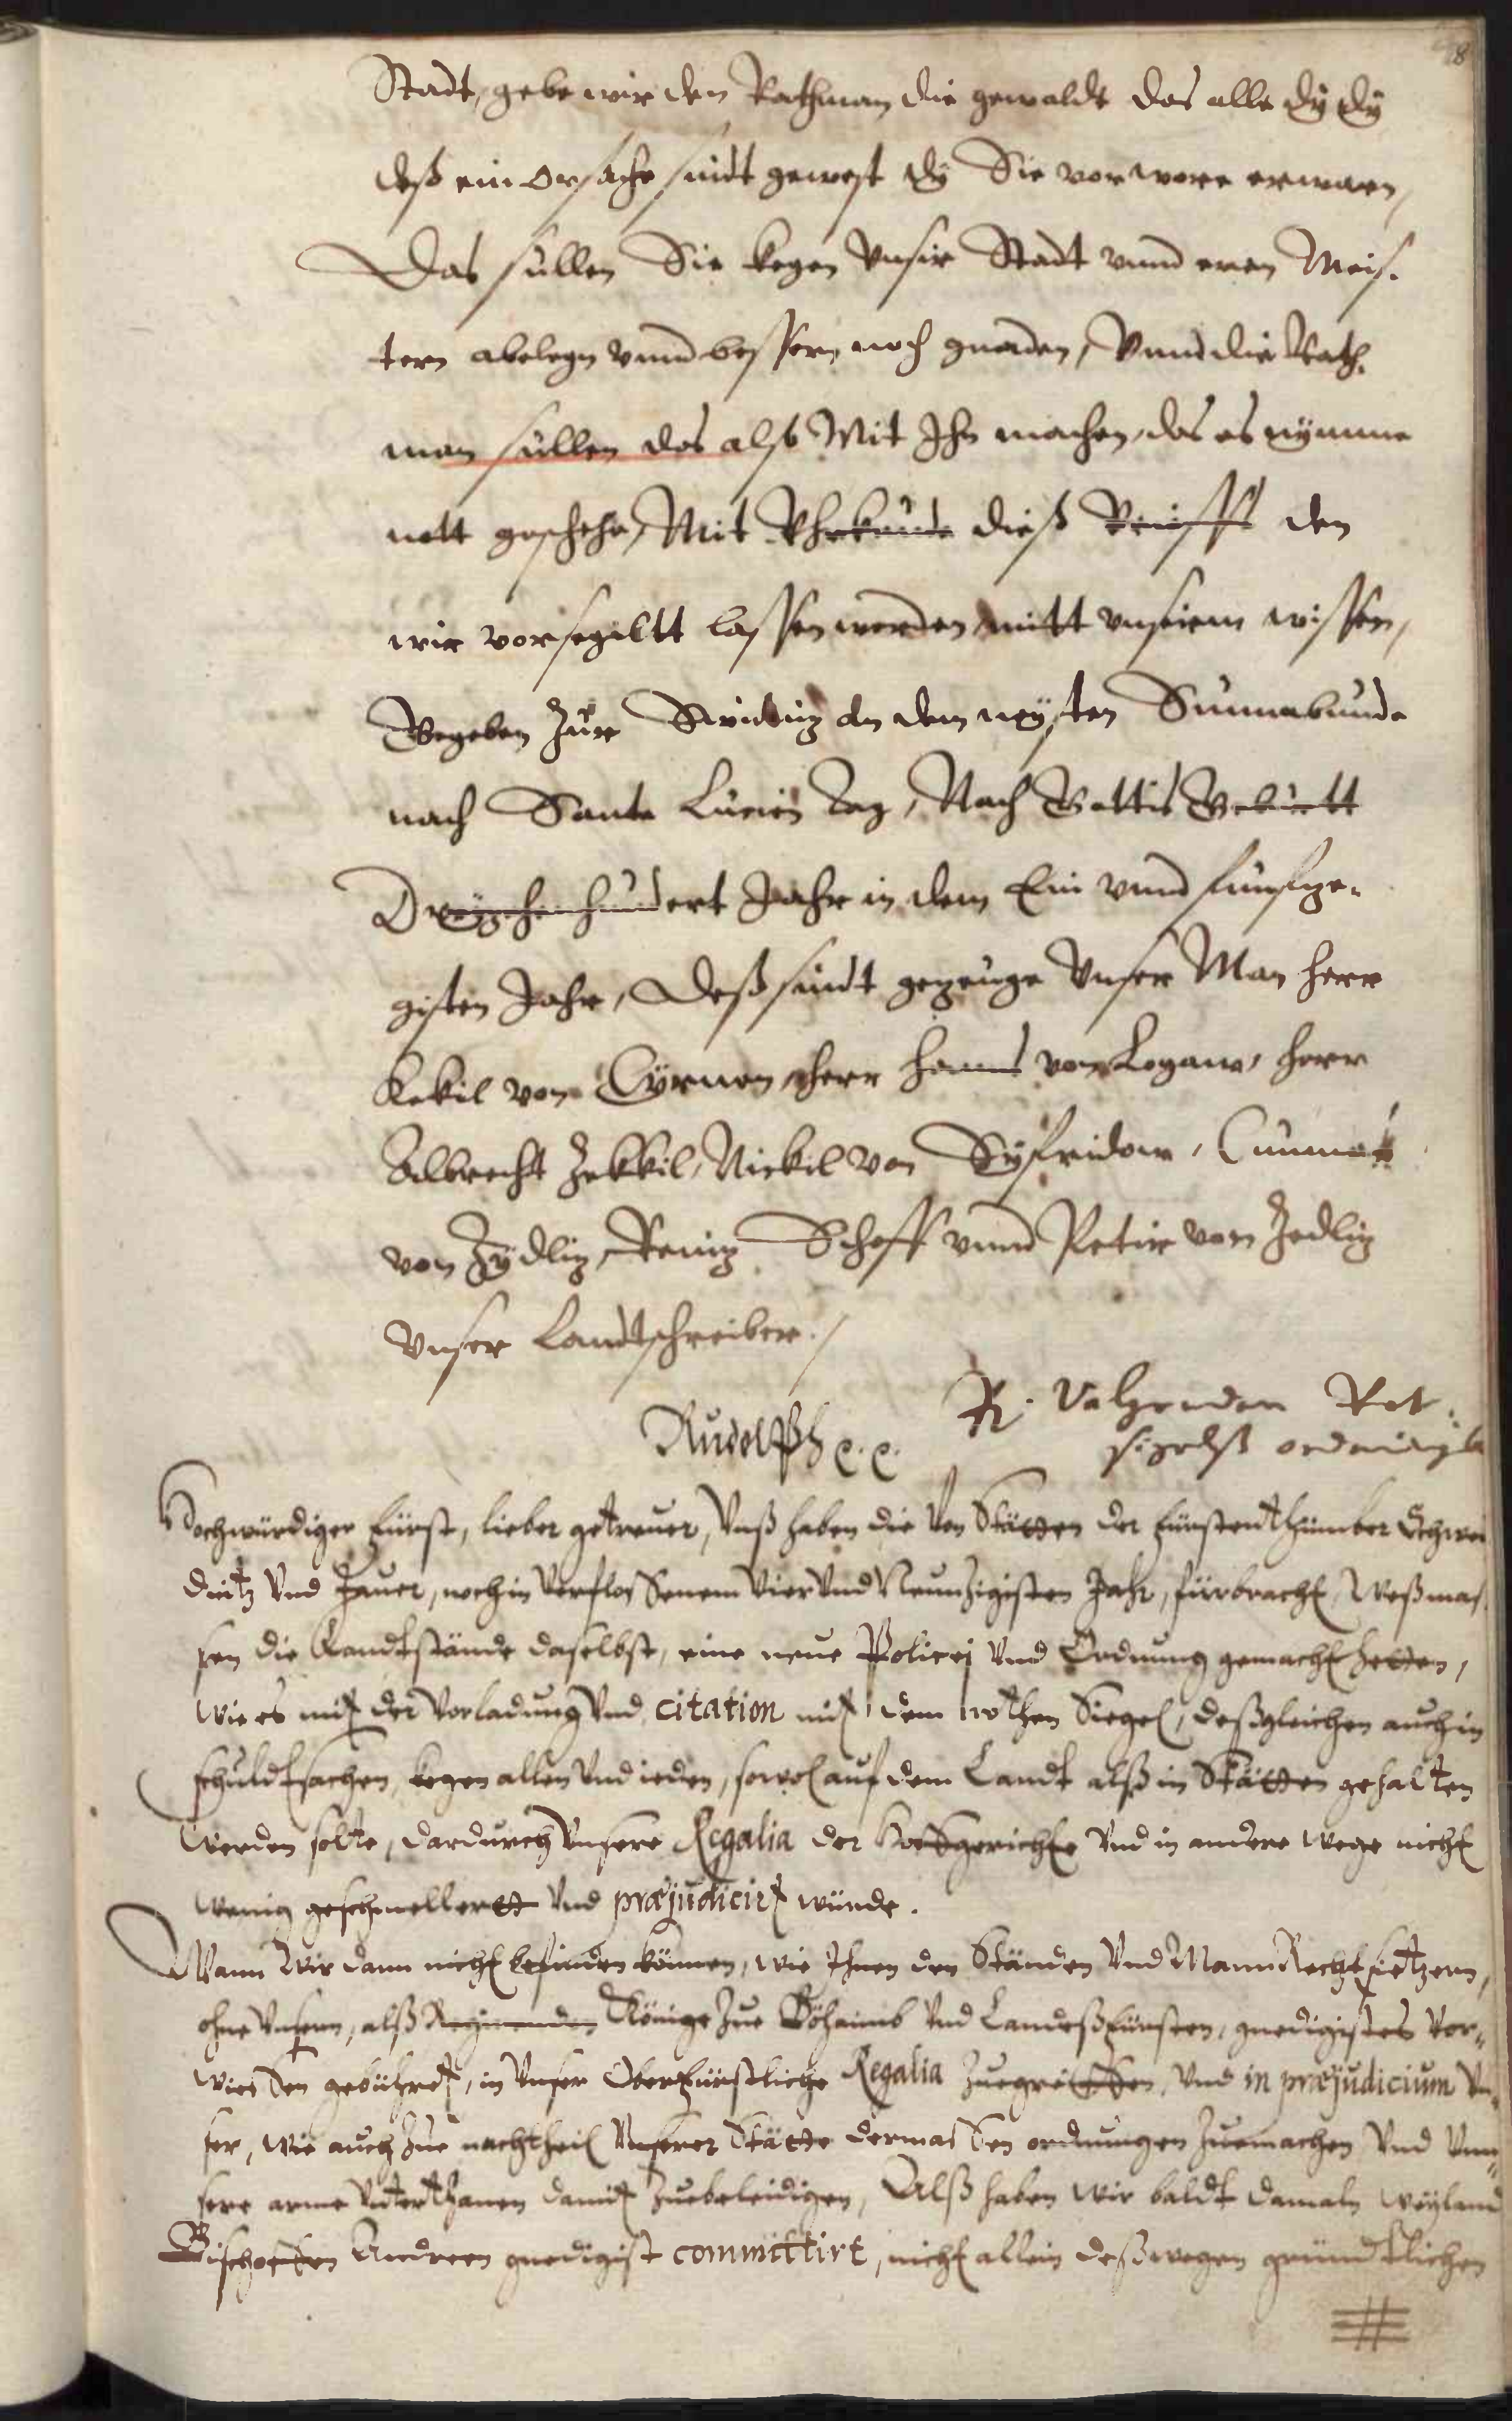 8
Stadt, gebe wir den Rathman die gewaldt das alle dÿ dÿ
deß ein orsache sindt gewest dÿ Sie vor ware erwaren,
Das sullen Sie kegen Vnsir Stadt vnnd eren Meis-
tern abelegn vnnd bessern noch gnaden, Vnnd die Rath-
man sullen das also Mit Ihn machen, das es nÿmme
nott geschehe, Mit Vhrkunde dieß Brieffß den
wir vorsegiltt lassen werden mitt vnsirm wissen,
Gegeben zur Swidnitz an dem neÿsten Sunnabunde
nach Sante Lucien Tag, Nach Gottis Geburtt
Dreÿzehenhundert Jahr in dem Ein vnnd funfze-
gisten Jahr, Deß sindt gezeuge Vnser Man herr
Kekil von Cÿrnen, herr Hanns von Logaw, herr
Albrecht Zekkil, Nickil von Sÿfridow, Cunnat
von Zÿdlitz, Reintz Schoff vnnd Petir von Zedlitz
Vnser Landtschreiber.
Rudolph e. e.
R. Volgenden Rot
sigelß ordnung
Hochwürdiger Fürst, lieber getreuer, Vnß haben die Von Stätten der Fürstenthümber Schwei
dnitz Vnd Jauer, noch in Verflossenem Vier Vnd Neunzigisten Jahr, fürbracht, Weßmas-
sen die Landtstände daselbst, eine neue Policej Vnd Ordnung gemacht hetten,
wie es mit der Vorladung Vnd citation mit dem rothen Siegel, deßgleichen auch in
schuldtsachen, kegen allen Vnd ieden, sowol auf dem Landt alß in Stätten gehalten
werden solte, dardurch Vnsere Regalia der Hoffgerichte Vnd in andere wege nicht
wenig geschmellert Vnd præjudicirt würde.
Wann Wir dann nicht befinden können, wie Ihnen den Ständen Vnd MannRechtsietzern,
ohne Vnsern, alß Regirenden Königs zue Böhaimb Vnd Landeßfürsten, gnedigistes Vor-
wiessen gebühret, in Vnser Oberfürstliche Regalia zuegreiffen, Vnd in præjudicium Vn-
ser, wie auch zue nachtheil Vnserer Stätte dermassen ordnungen zuemachen Vnd Vnn-
sere arme Vnterthanen damit zuebeleidigen, Alß haben wir baldt damaln weÿland
Bischoffen Andreen gnedigist committirt, nicht allein deßwegen gründtlichen